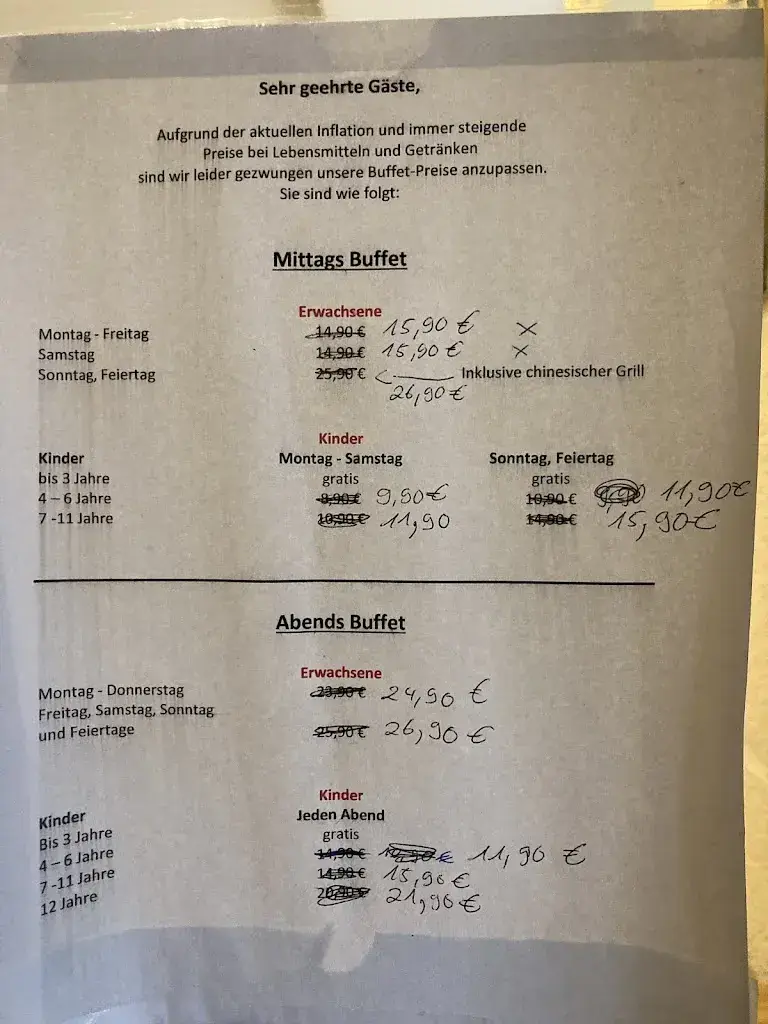 Sehr geehrte Gäste,
Aufgrund der aktuellen Inflation und immer steigende
Preise bei Lebensmitteln und Getränken
sind wir leider gezwungen unsere Buffet-Preise anzupassen.
Sie sind wie folgt:
Mittags Buffet
Erwachsene
Montag - Freitag 14,90 € 15,90 € X
Samstag 14,90 € 15,90 € X
Sonntag, Feiertag 25,90 € Inklusive chinesischer Grill
26,90 €
Kinder
Kinder Montag - Samstag Sonntag, Feiertag
bis 3 Jahre gratis gratis
4 – 6 Jahre 8,90 € 9,90 € 10,90 € 11,90 €
7 -11 Jahre 10,90 € 11,90 14,90 € 15,90 €
Abends Buffet
Erwachsene
Montag - Donnerstag 23,90 € 24,90 €
Freitag, Samstag, Sonntag
und Feiertage 25,90 € 26,90 €
Kinder
Kinder Jeden Abend
Bis 3 Jahre gratis
4 – 6 Jahre € 11,90 €
7 -11 Jahre 14,90 € 15,90 €
12 Jahre 20,90 € 21,90 €